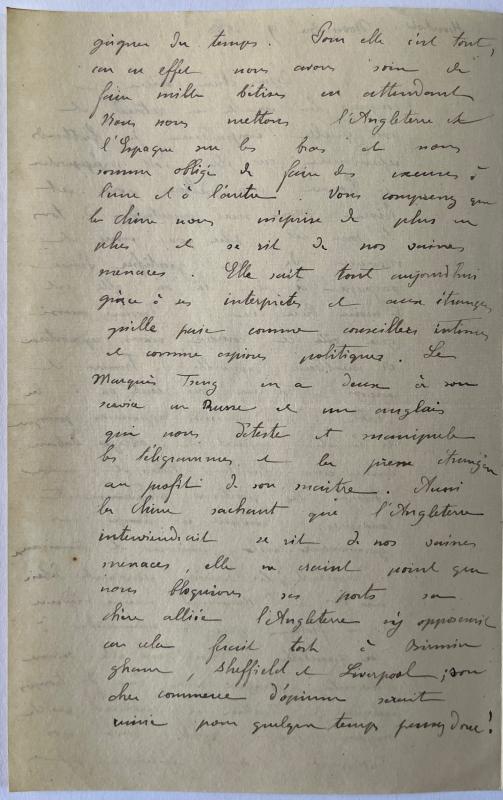 gagner du temps. Pour elle c'est tout,
car en effet nous avons soin de
faire mille bêtises en attendant
Nous nous mettons l'Angleterre et
l'Espagne sur les bras et nous
sommes obligé de faire des excuses à
l'une et à l'autre. Vous comprenez que
la Chine nous méprise de plus en
plus et se rit de nos vaines
menaces. Elle sait tout aujourd'hui
grâce à ses interprètes et aux étrangers
qu'elle paie comme conseillers intimes
et comme espions politiques. Le
Marquis Tseng en a deux à son
service un Russe et un anglais
qui nous déteste et manipule
les télégrammes et la presse étrangère
au profit de son maître. Aussi
la Chine sachant que l'Angleterre
interviendrait se rit de nos vaines
menaces, elle ne craint point que
nous bloquions ses ports sa
chère alliée l'Angleterre s'y opposerait
car cela ferait tort à Birmin
gham, Sheffield et Liverpool; son
cher commerce d'opium serait
ruiné pour quelque temps pensez donc!